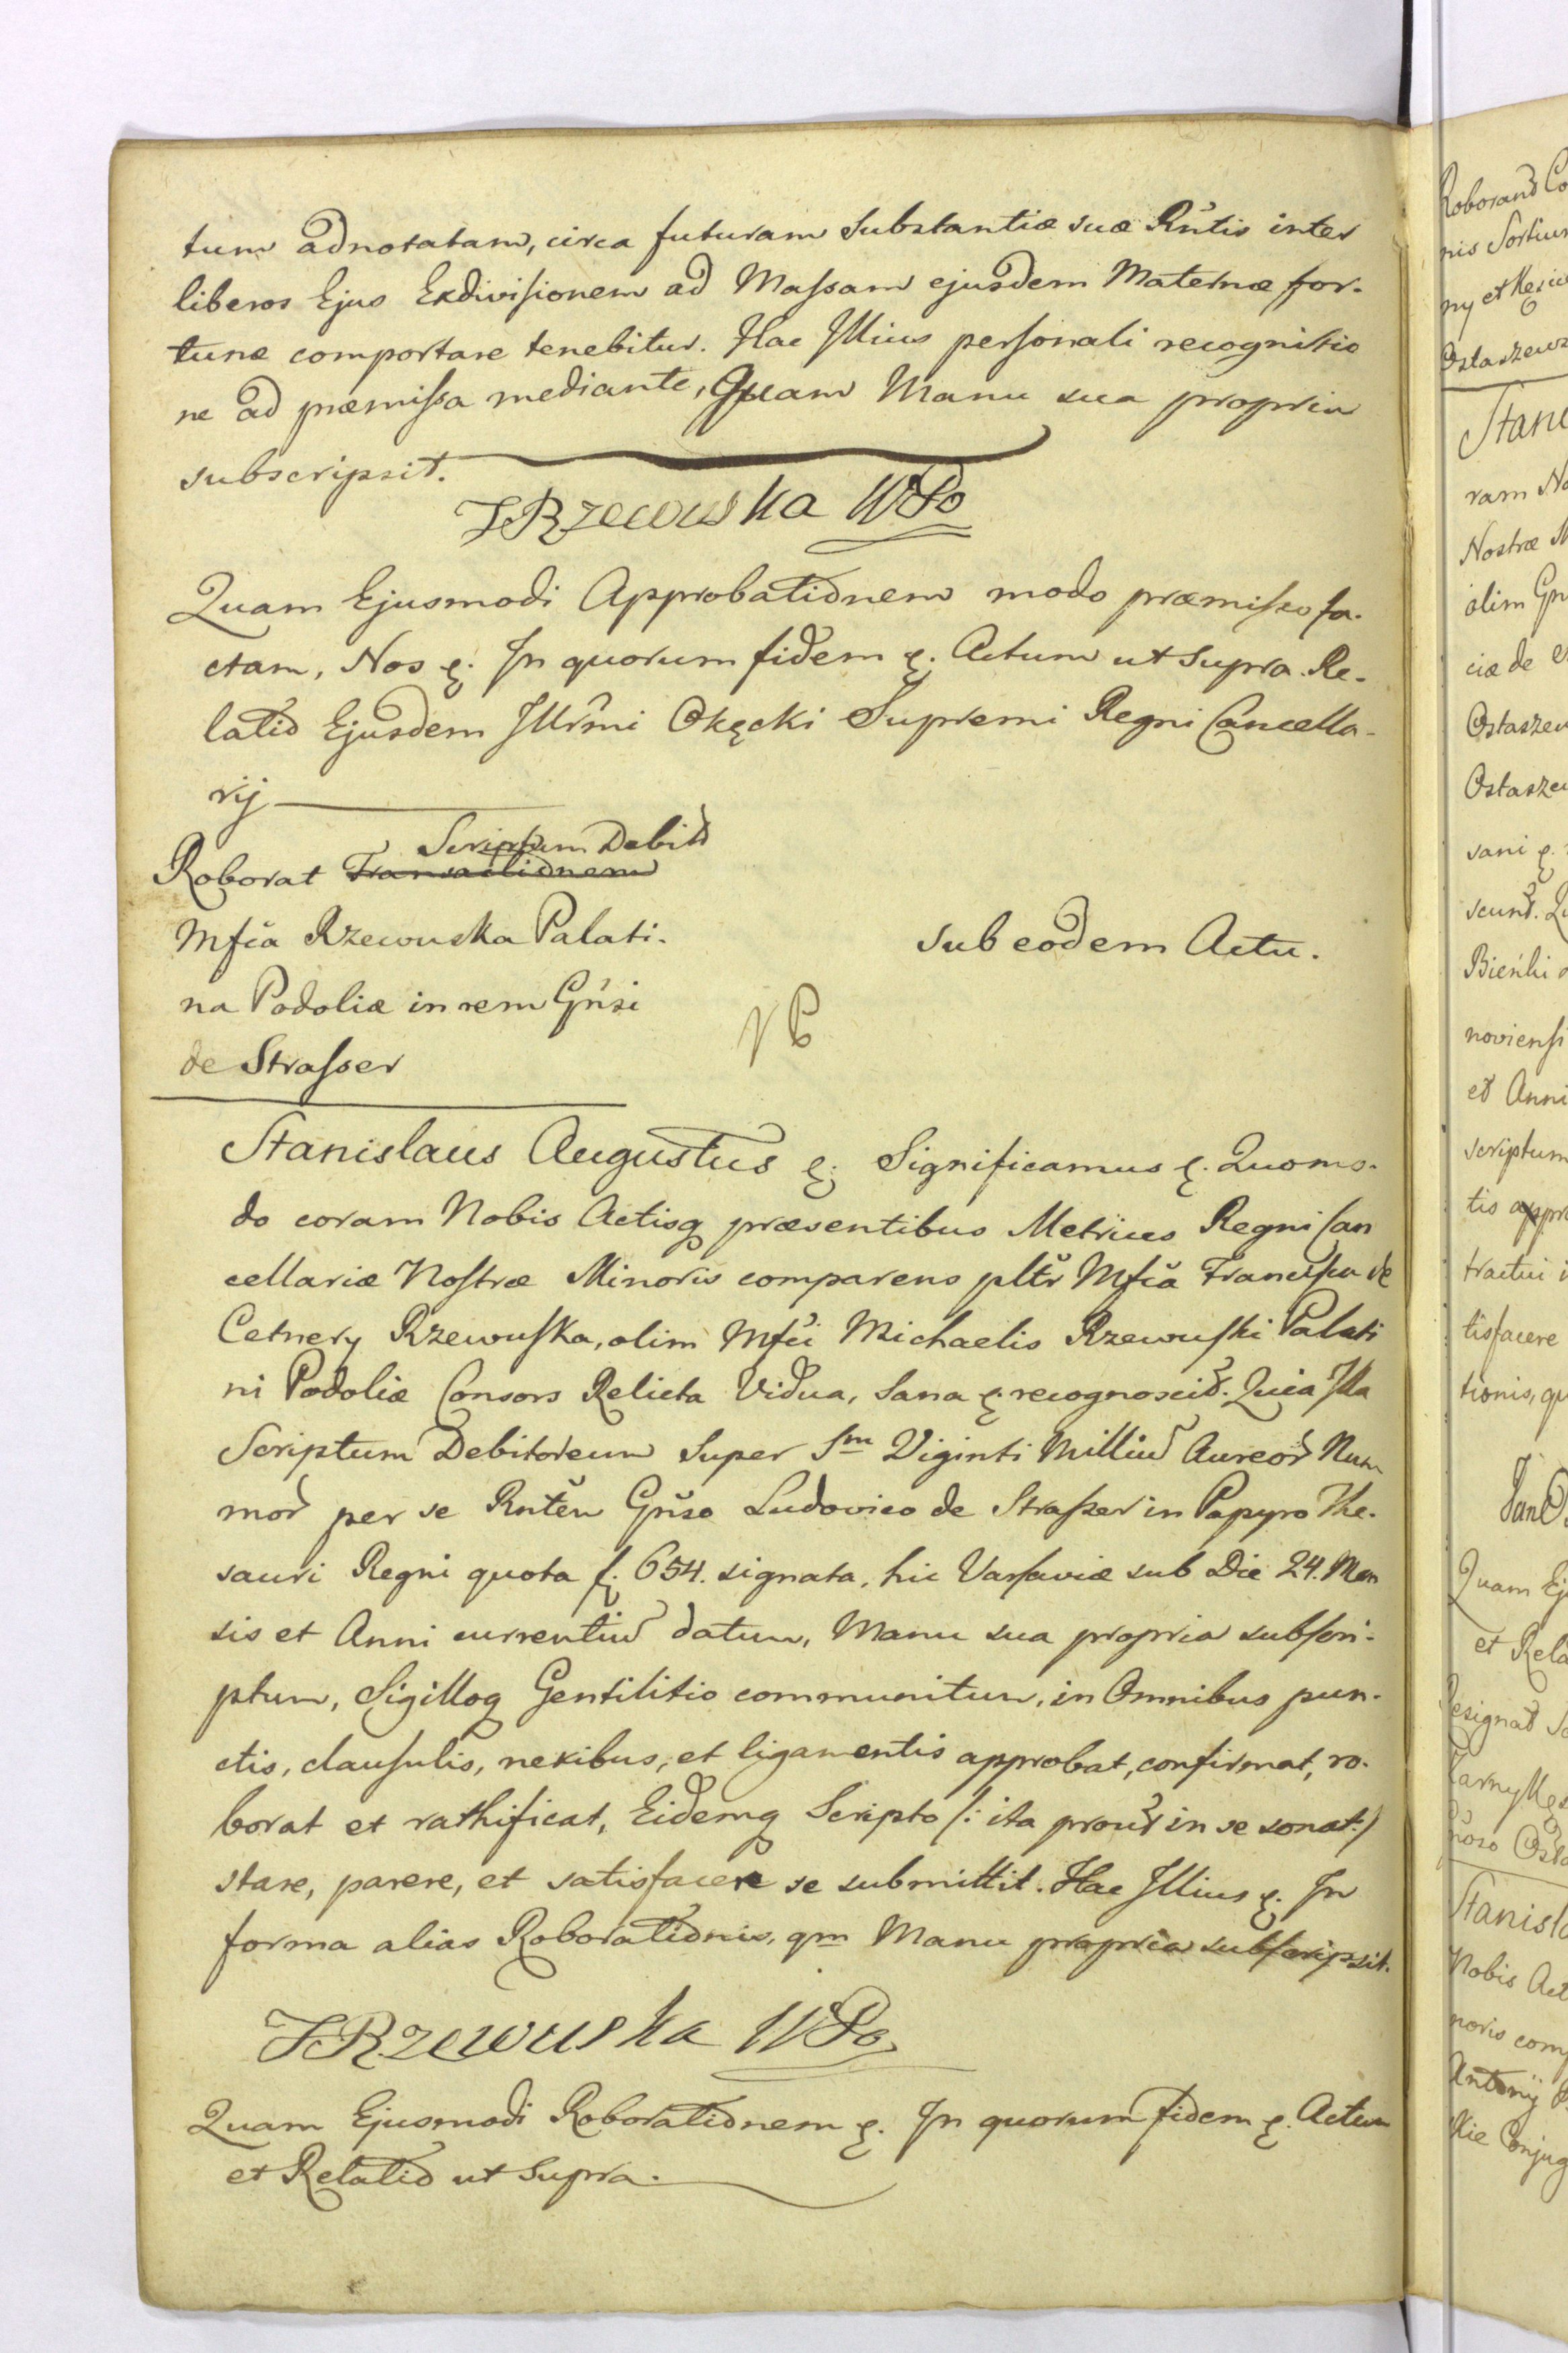 tum adnotatam, circa futuram substantiæ suæ Rn̄tis inter
liberos Ejus Exdivisionem ad Massam ejusdem Maternæ for-
tunæ comportare tenebitur. Hac Illius personali recognitio
ne ad præmissa mediante, Quam Manu sua propria
subscripsit.
FRzewuska WPo
Quam Ejusmodi Approbationem modo præmisso fa-
ctam, Nos ꝛ. In quorum fidem ꝛ. Actum ut supra. Re-
latio Ejusdem Illr̄mi Okęcki Supremi Regni Cancella-
rij
Scriptum Debit
Roborat Transactionem
Mfc̄a Rzewuska Palati-
na Podoliæ in rem Gn̄si
de Strasser
sub eodem Actu.
Stanislaus Augustus ꝛ; Significamus ꝛ. Quomo-
do coram Nobis Actisq præsentibus Metrices Regni Can
cellariæ Nostræ Minoris comparens pltr̄ Mfc̄a Francisca de
Cetnery Rzewuska, olim Mfc̄i Michaelis Rzewuski Palati
ni Podoliæ Consors Relicta Vidua, sana ꝛ. recognoscit. Quia Illa
Scriptum Debitoreum super Sm Viginti Milliu Aureor Num
mor per se Rntēm Gn̄so Ludovico de Strasser in Papyro The-
sauri Regni quota f. 654. signata, hic Varsaviæ sub Die 24. Men
sis et Anni currentiu datum, Manu sua propria subscri-
ptum, Sigilloq Gentilitio communitum, in Omnibus pun-
ctis, clausulis, nexibus, et ligamentis approbat, confirmat, ro-
borat et rathificat, Eidemq Scripto /: ita prout in se sonat:/
stare, parere, et satisfacere se submittit. Hac Illius ꝛ. In
forma alias Roborationis, qm Manu propria subscripsit.
FRzewuska WPo
Quam Ejusmodi Roborationem ꝛ. In quorum fidem ꝛ. Actum
et Relatio ut supra.
Roborand Co
nis Sortiu
ny et
Ostaszew
Stani
ram No
Nostræ M
olim Gn
ciæ de
Ostaszew
Ostaszew
sani ꝛ.
scunt. Q
Bieńki
noviensi
et Anni
scriptum
tis appro
tractui i
tisfacere
tionis, qu
Jan O
Quam Ej
et Rela
Resignat So
Ostas
Stanisla
Nobis Act
noris comp
Antonij
Conjug